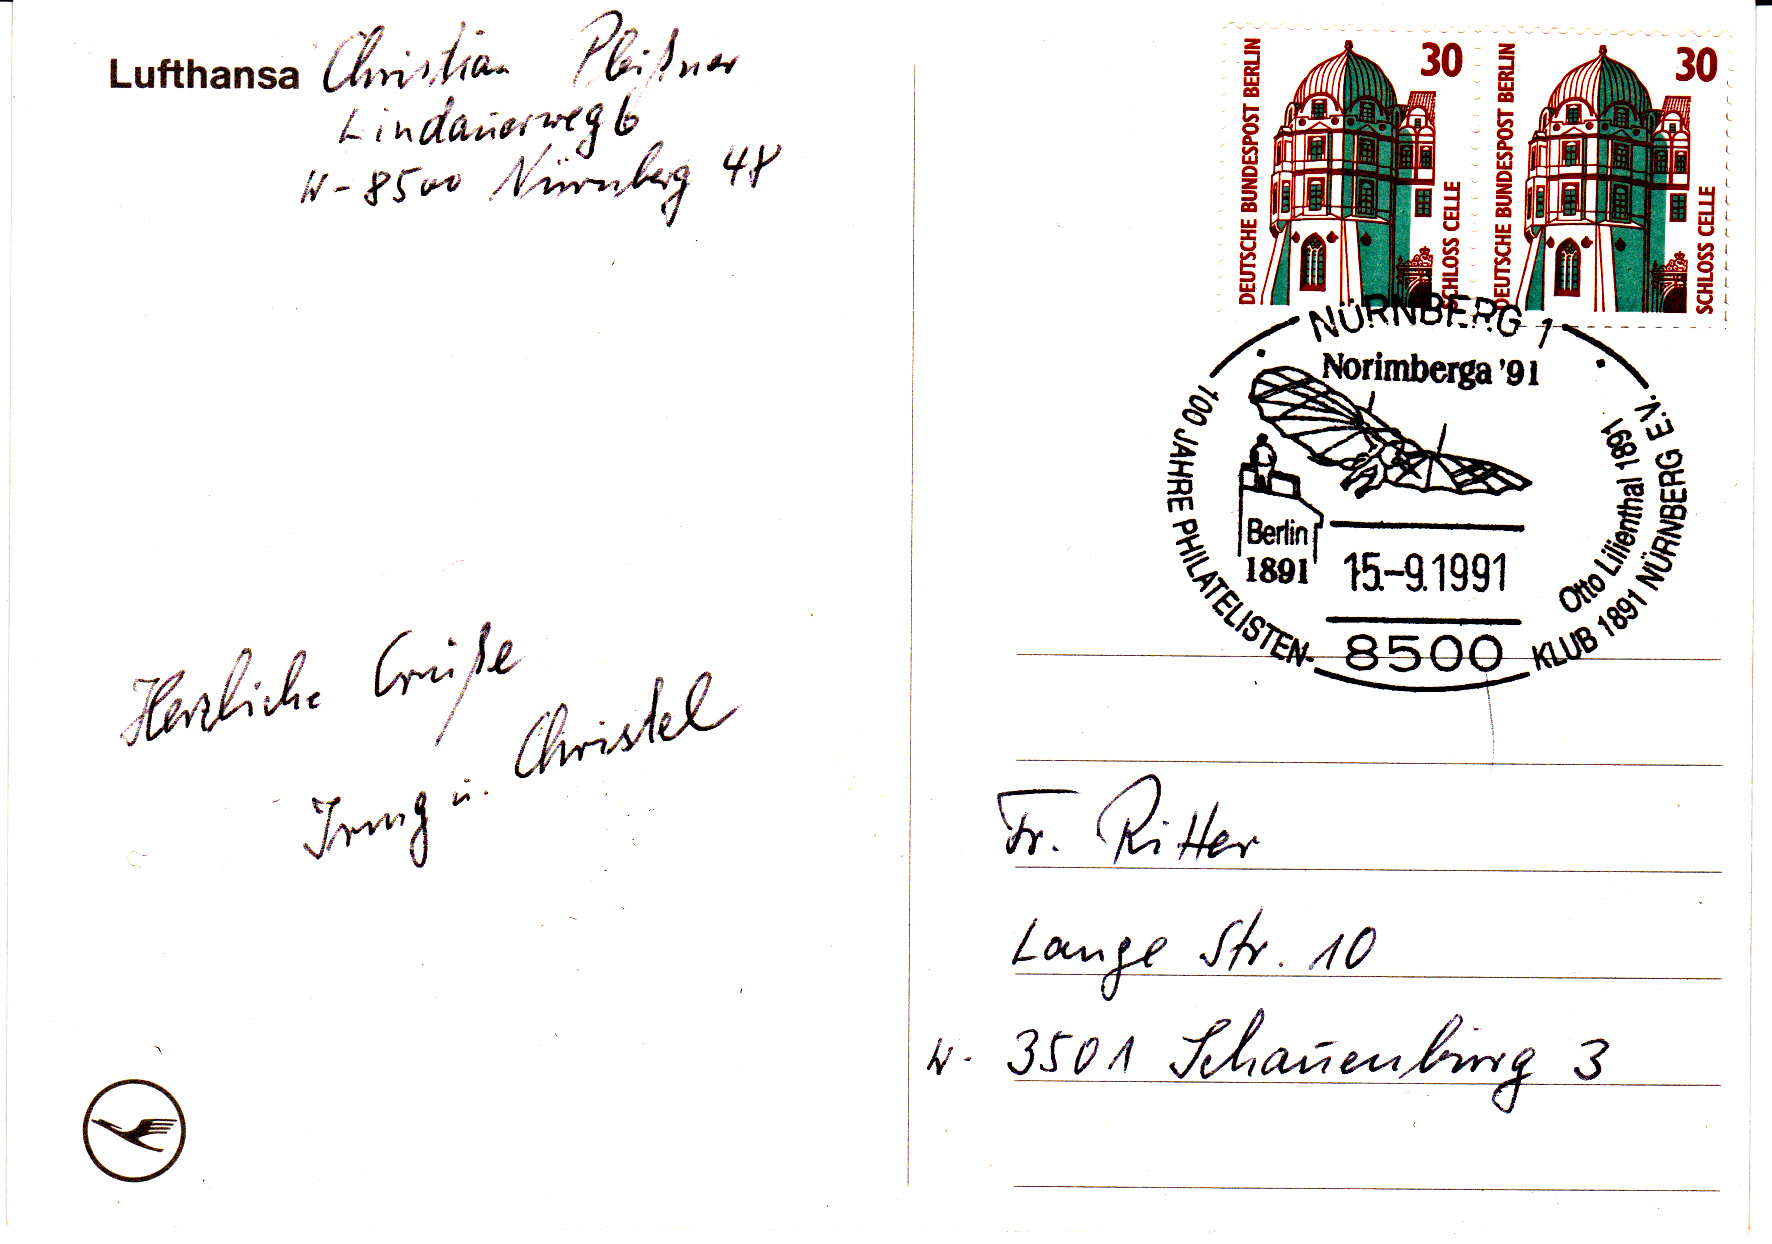 Lufthansa
Christian Pleißner
Lindauerweg 6
W-8500 Nürnberg 48
DEUTSCHE BUNDESPOST BERLIN
30
SCHLOSS CELLE
DEUTSCHE BUNDESPOST BERLIN
30
SCHLOSS CELLE
NÜRNBERG 1
Norimberga '91
Berlin
1891
15.-9.1991
8500
Otto Lilienthal 1891
100 JAHRE PHILATELISTEN-KLUB 1891 NÜRNBERG E.V.
Herzliche Grüße
u. Christel
Fr. Ritter
Lange Str. 10
W- 3501 Schauenburg 3